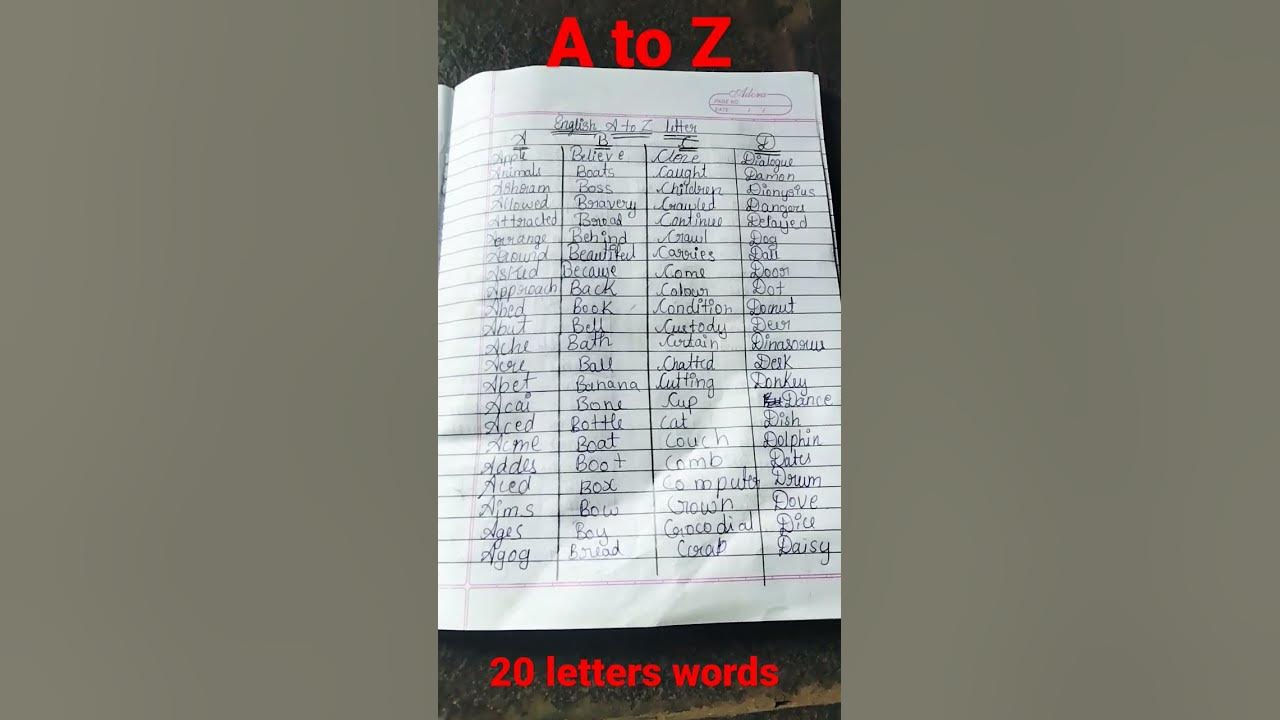 A to Z
Adora
PAGE NO
DATE / /
English A to Z letter
A B C D
Apple Believe Close Dialogue
Animals Boats Caught Damon
Ashram Boss Children Dionysius
Allowed Bravery Crawled Dangers
Attracted Broad Continue Delayed
Arrange Behind Crawl Dog
Around Beautiful Carries Dall
Asked Because Come Door
Approach Back Colour Dot
Abed Book Condition Donut
Abut Bell Custody Deer
Ache Bath Curtain Dinasorus
Acre Ball Chatted Desk
Abet Banana Cutting Donkey
Acai Bone Cup Dance
Aced Bottle Cat Dish
Acme Boat Couch Dolphin
Addes Boot Comb Dates
Aced Box Computer Drum
Aims Bow Crown Dove
Ages Boy Crocodial Dice
Agog Bread Crab Daisy
20 letters words